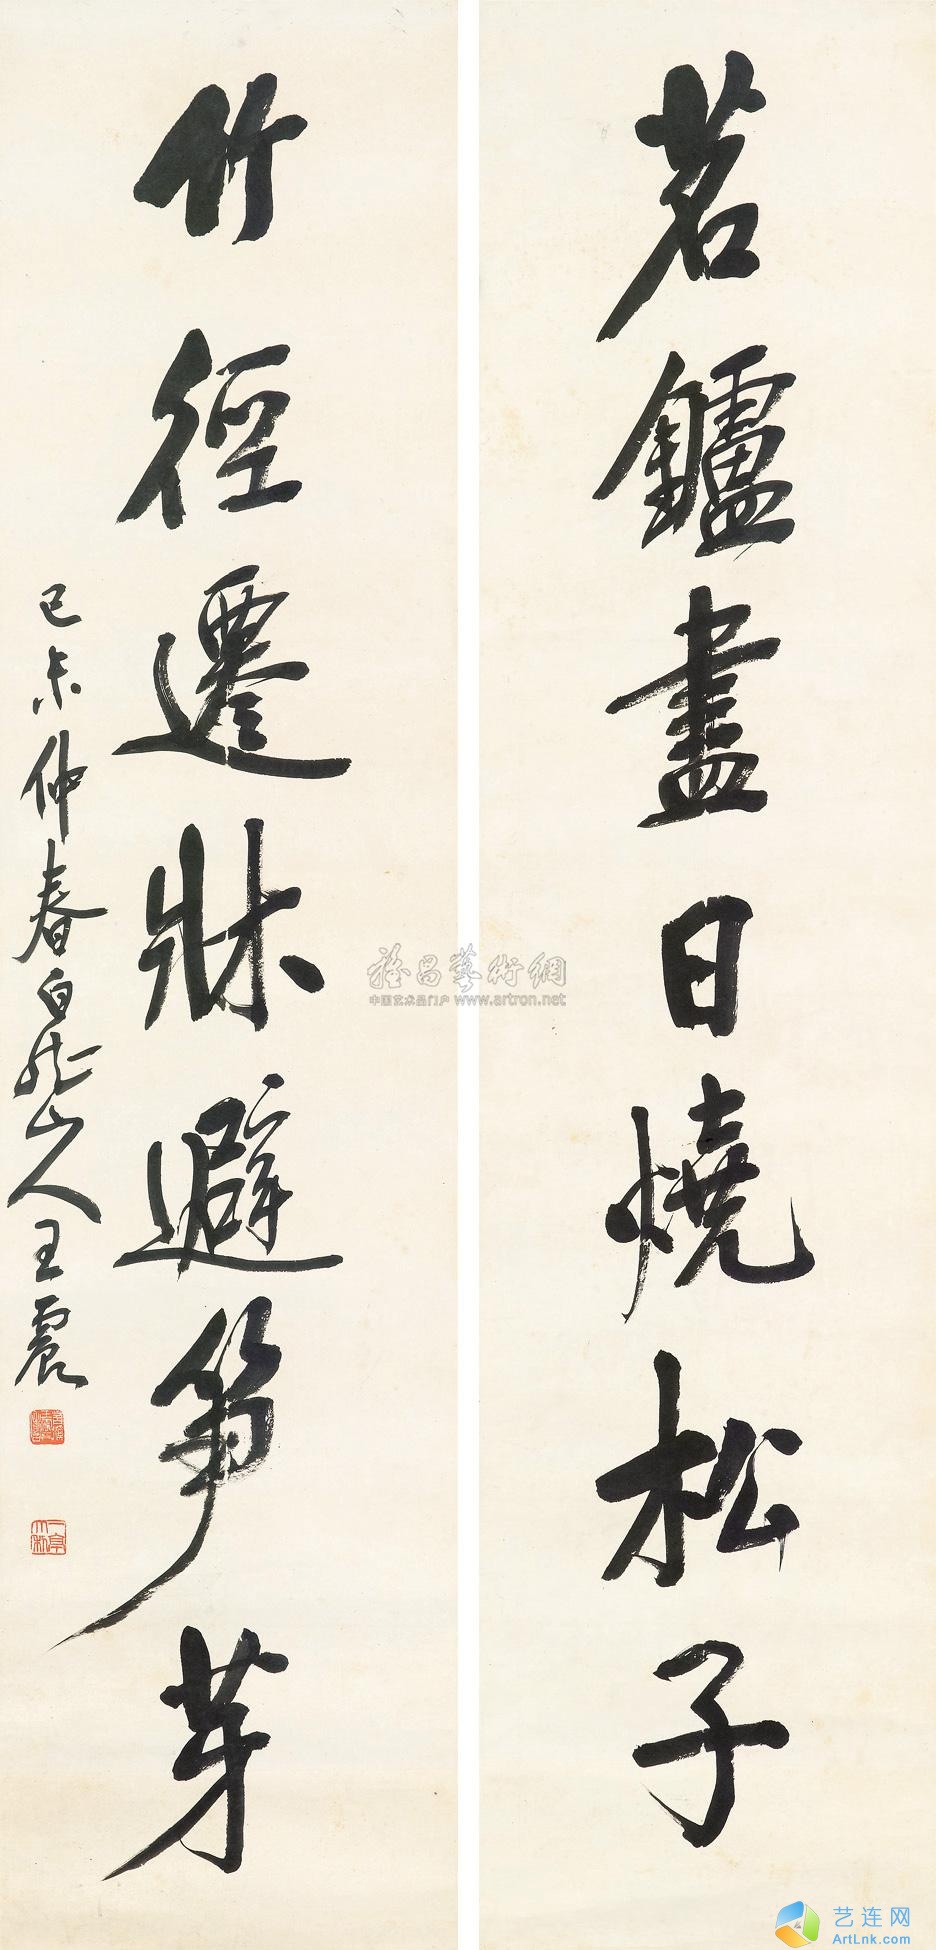 茗鑪盡日燒松子
竹徑遷牀避笋芽
己未仲春白龍山人王震
雅昌藝術網
中国艺术品门户 www.artron.net
艺连网
ArtLnk.com